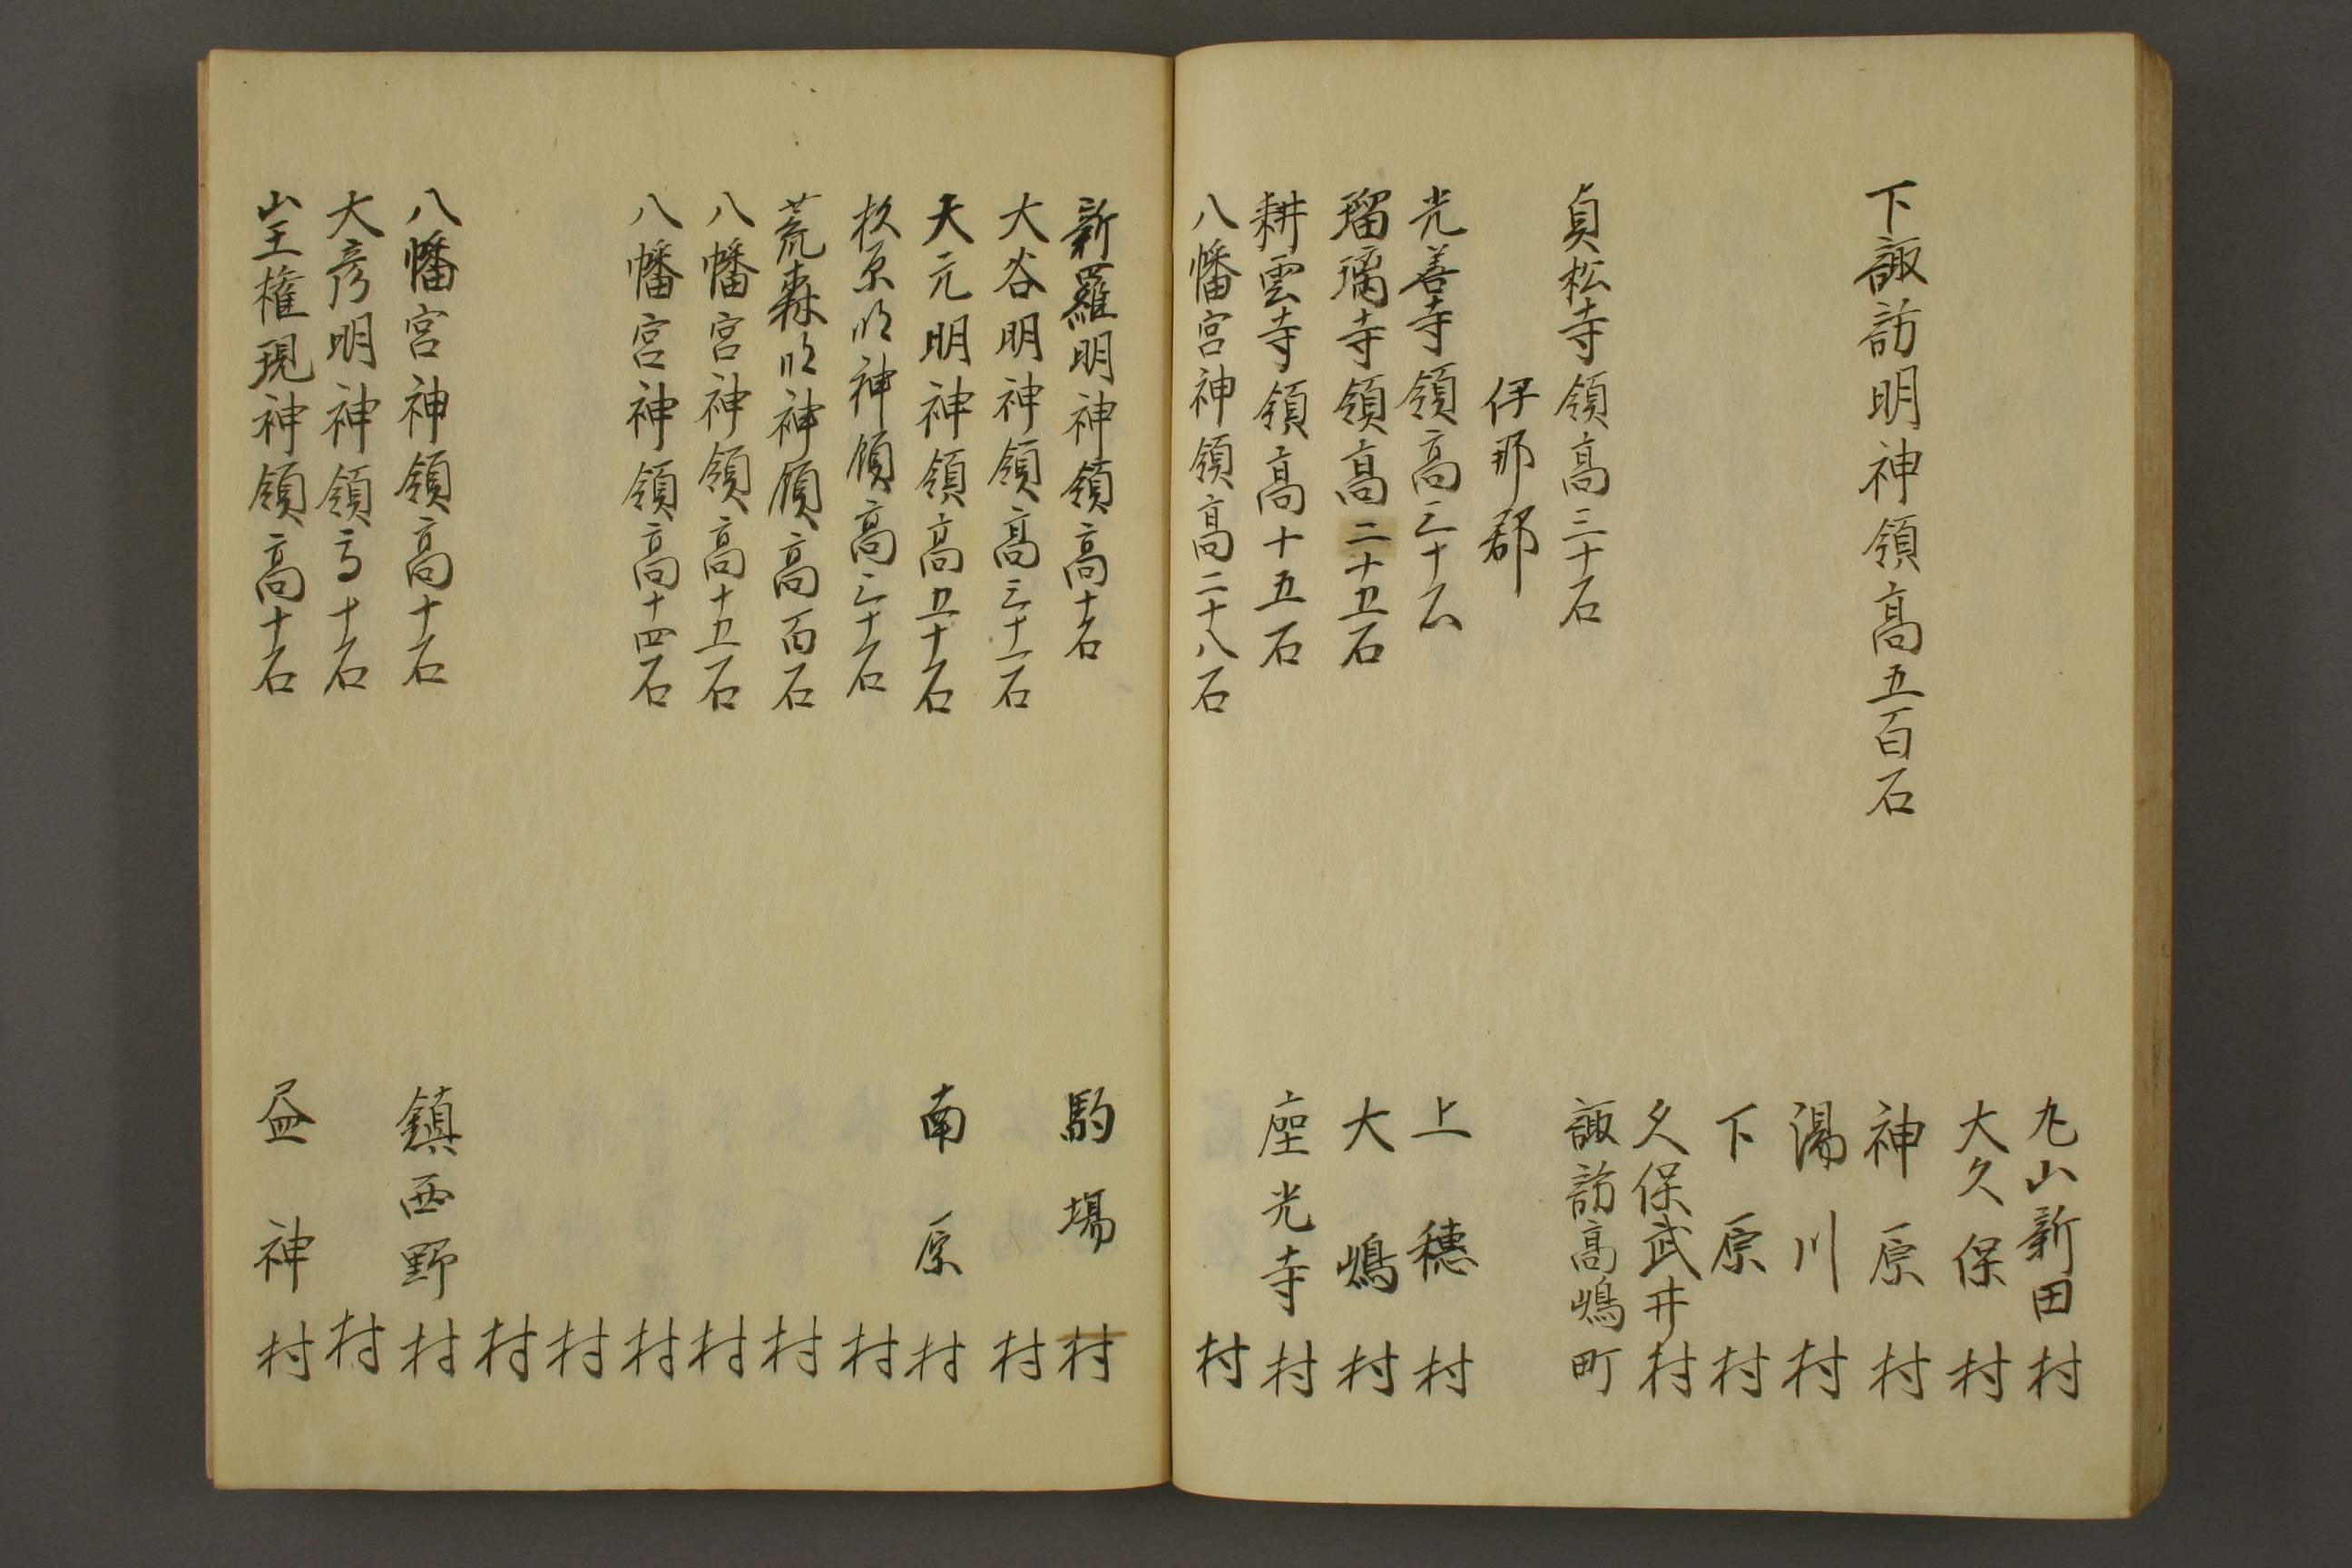 丸山新田村
大久保村
下諏訪明神領高五百石　神原村
湯川村
下原村
久保武井村
貞松寺領高三十石　諏訪高嶋町
伊那郡
光善寺領高三十石　上穂村
瑠璃寺領高二十五石　大嶋村
耕雲寺領高十五石　座光寺村
八幡宮神領高二十八石　村
新羅明神領高十石　駒場村
大谷明神領高三十一石　村
天元明神領高五十石　南原村
杦原明神領高三十石　村
荒森明神領高百石　村
八幡宮神領高十五石　村
八幡宮神領高十四石　村
村
村
八幡宮神領高十石　鎮西野村
大彦明神領高十石　村
山王権現神領高十石　神村